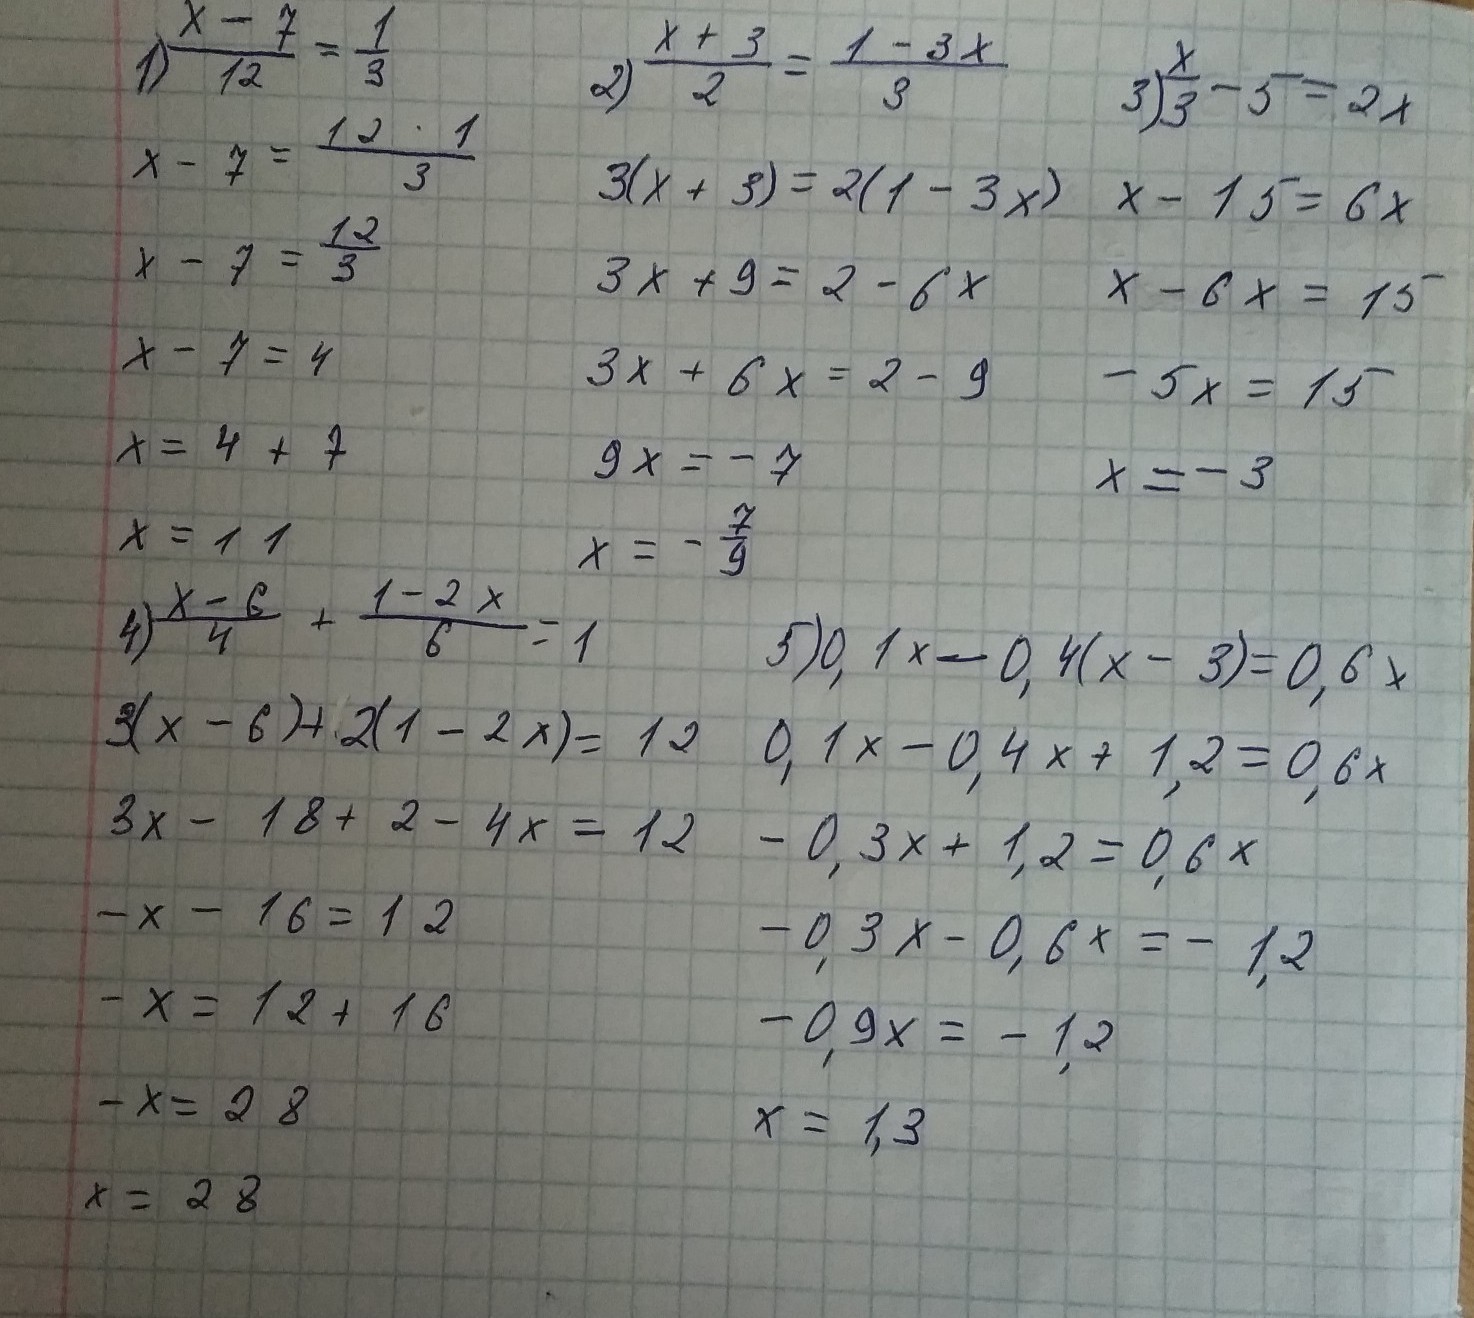 1) (x - 7)/12 = 1/3
x - 7 = (12 · 1)/3
x - 7 = 12/3
x - 7 = 4
x = 4 + 7
x = 11
2) (x + 3)/2 = (1 - 3x)/3
3(x + 3) = 2(1 - 3x)
3x + 9 = 2 - 6x
3x + 6x = 2 - 9
9x = - 7
x = - 7/9
3) x/3 - 5 = 2x
x - 15 = 6x
x - 6x = 15
- 5x = 15
x = - 3
4) (x - 6)/4 + (1 - 2x)/6 = 1
3(x - 6) + 2(1 - 2x) = 12
3x - 18 + 2 - 4x = 12
-x - 16 = 12
-x = 12 + 16
-x = 28
x = 28
5) 0,1x - 0,4(x - 3) = 0,6x
0,1x - 0,4x + 1,2 = 0,6x
- 0,3x + 1,2 = 0,6x
- 0,3x - 0,6x = - 1,2
- 0,9x = - 1,2
x = 1,3